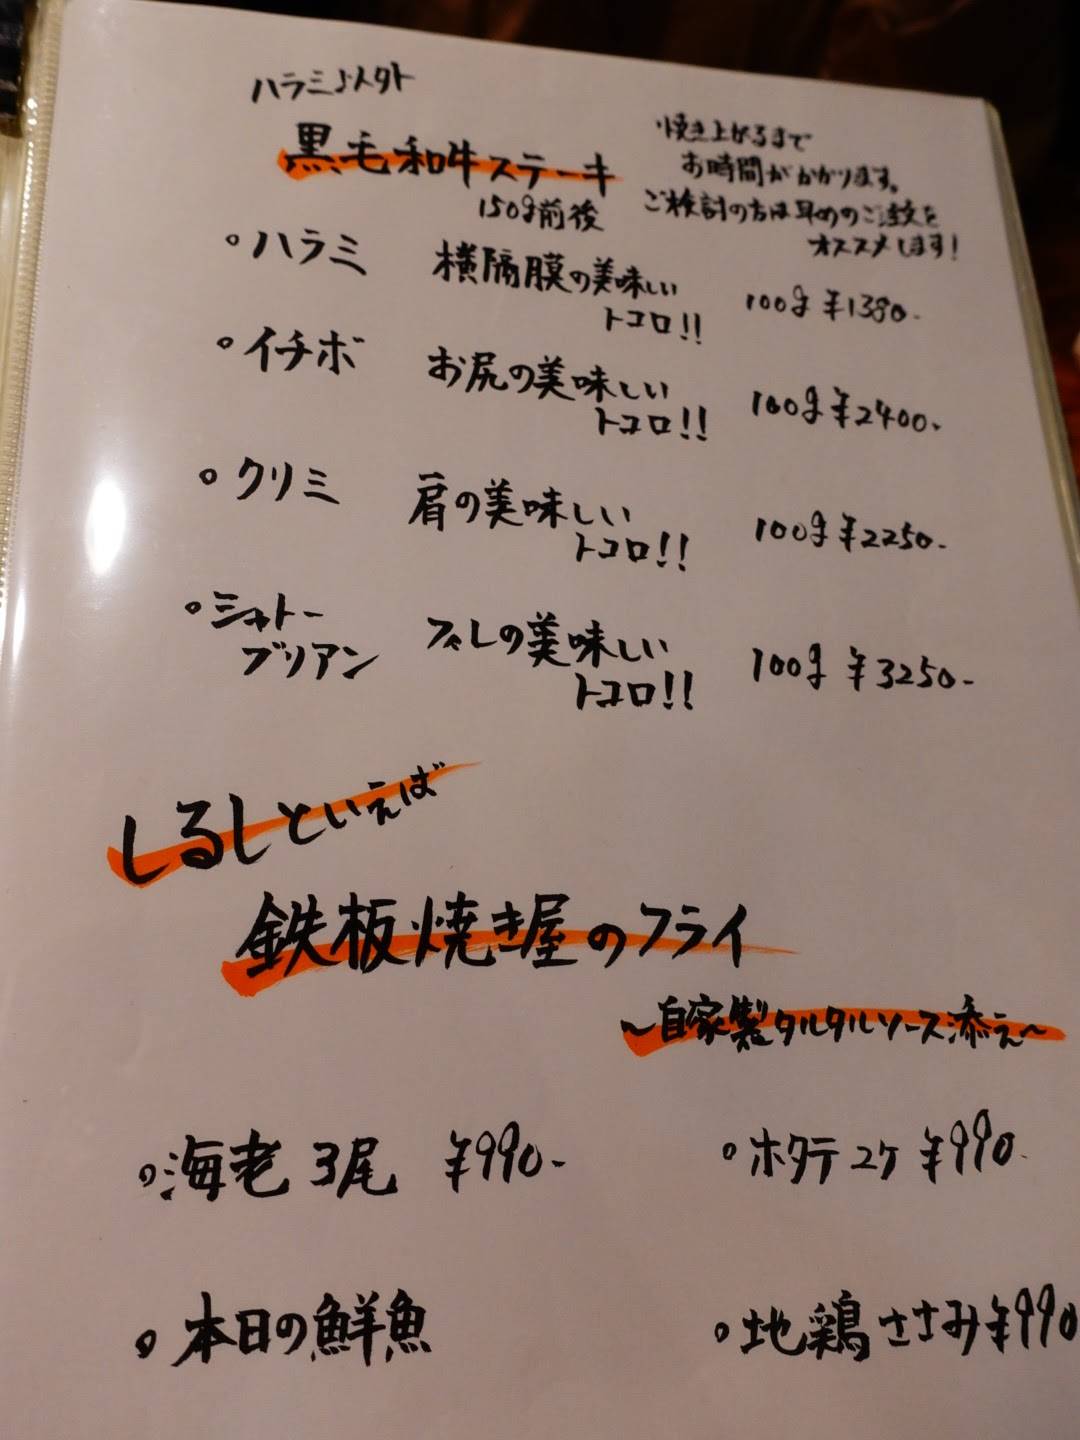 ハラミ以外
黒毛和牛ステーキ
150g前後
焼き上がるまで
お時間がかかります。
ご検討の方は早めのご注文を
オススメします!
・ハラミ 横隔膜の美味しい
トコロ!! 100g ¥1380-
・イチボ お尻の美味しい
トコロ!! 100g ¥2400-
・クリミ 肩の美味しい
トコロ!! 100g ¥2250-
・シャトー
ブリアン フィレの美味しい
トコロ!! 100g ¥3250-
しるしといえば
鉄板焼き屋のフライ
～自家製タルタルソース添え～
・海老 3尾 ¥990-
・ホタテ 2ケ ¥990-
・本日の鮮魚
・地鶏ささみ ¥990